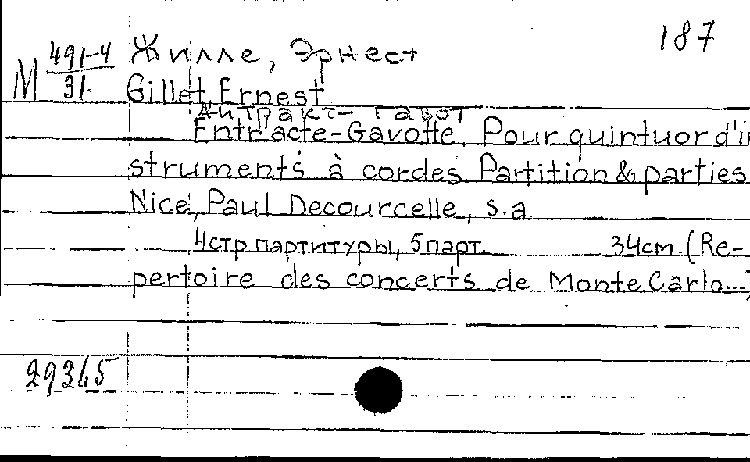 187
M 491-4/31
Жилле, Эрнест
Gillet Ernest
Антракт-гавот
Entr'acte-Gavotte. Pour quintuor d'in
struments à cordes Partition & parties
Nice, Paul Decourcelle, s.a
4стр партитуры, 5парт. 34cm (Re-
pertoire des concerts de Monte Carlo...)
29345